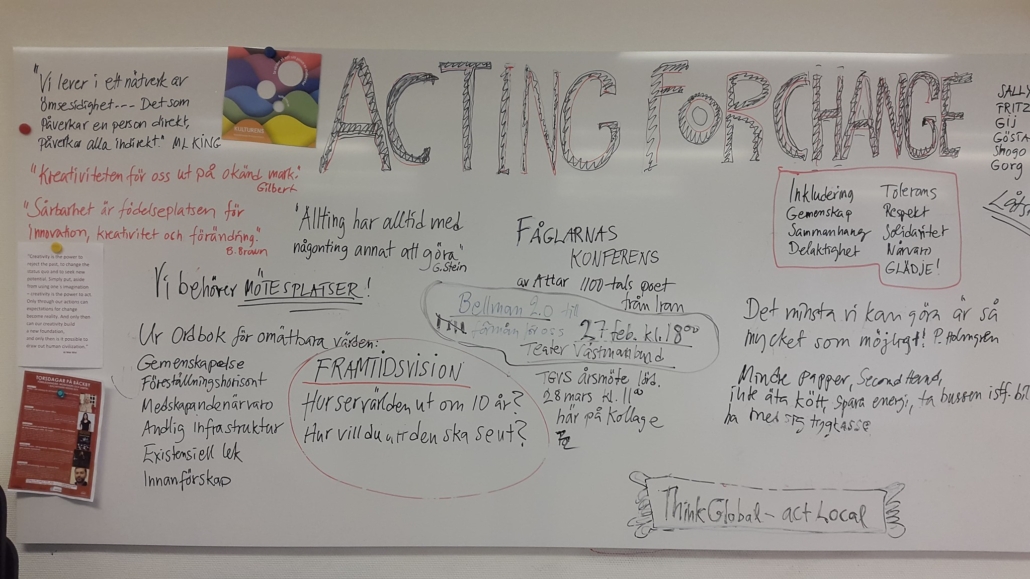 ACTING FOR CHANGE
"Vi lever i ett nätverk av
ömsesidighet--- Det som
Påverkar en person direkt,
påverkar alla indirekt." ML KING
KULTURENS
"Kreativiteten för oss ut på okänd mark."
Gilbert
"Sårbarhet är födelseplatsen för
innovation, kreativitet och förändring."
B. Brown
"Creativity is the power to
reject the past, to change the
status quo and to seek new
potential. Simply put, aside
from using one's imagination
– creativity is the power to act.
Only through our actions can
expectations for change
become reality. And only then
can our creativity build
a new foundation,
and only then is it possible to
draw out human civilization."
TORSDAGAR PÅ SÄCKEN
Vi behöver MÖTESPLATSER!
Ur Ordbok för omätbara värden:
Gemenskapelse
Föreställningshorisont
Medskapandenärvaro
Andlig Infrastruktur
Existensiell lek
Innanförskap
"Allting har alltid med
någonting annat att göra"
G. Stein
FRAMTIDSVISION
Hur ser världen ut om 10 år?
Hur vill du att den ska se ut?
FÅGLARNAS
KONFERENS
av Attar 1100-tals poet
från Iran
Bellman 2.0 till
förmån för oss
27 feb. kl. 18 00
Teater Västmanland
TGVS årsmöte lörd.
28 mars kl. 11 00
här på Kollage
Inkludering
Gemenskap
Sammanhang
Delaktighet
Tolerans
Respekt
Solidaritet
Närvaro
GLÄDJE!
SALLY
FRITZ
GIJ
GÖSTA
Shogo
Gorg
Det minsta vi kan göra är så
mycket som möjligt! P. Holmgren
Mindre papper, Second Hand,
inte äta kött, spara energi, ta bussen istf. bil
ha med sig tygkasse
Think Global – act Local